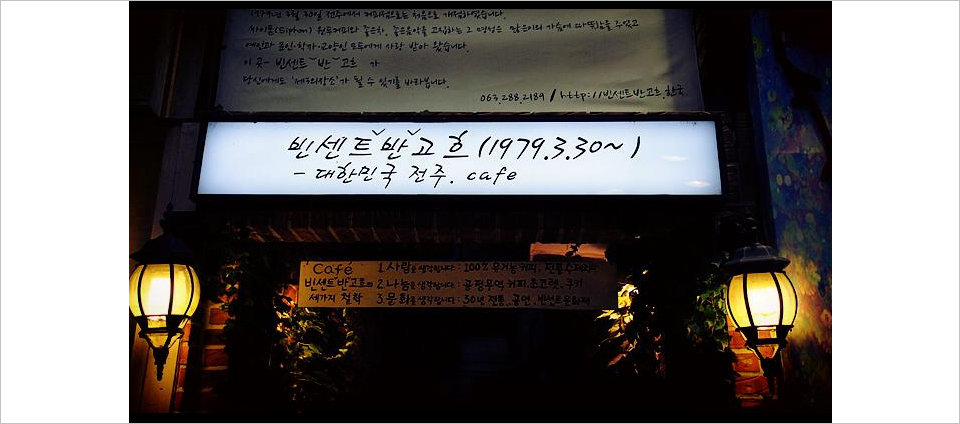 1979년 3월 30일 전주에서 커피점으로는 처음으로 개점하였습니다.
싸이폰(Siphon) 원두커피와 좋은차, 좋은음악을 고집하는 그 명성은 많은이의 가슴에 따뜻함을 주었고
예인과 문인·학가·교양인 모두에게 사랑 받아 왔습니다.
이 곳- 빈센트ˇ반ˇ고흐 가
당신에게도 '제3의장소'가 될 수 있기를 바라봅니다.
063.288.2189 / http://빈센트반고흐.한국
빈센트ˇ반ˇ고흐 (1979.3.30~)
- 대한민국 전주. cafe
Café 1 사람을 생각합니다 : 100% 유기농커피, 전통수제차
빈센트반고흐의 2 나눔을 생각합니다 : 공정무역 커피.초고렛.쿠키
세가지 철학 3 문화를 생각합니다 : 30년 전통, 공연, 빈센트문화제